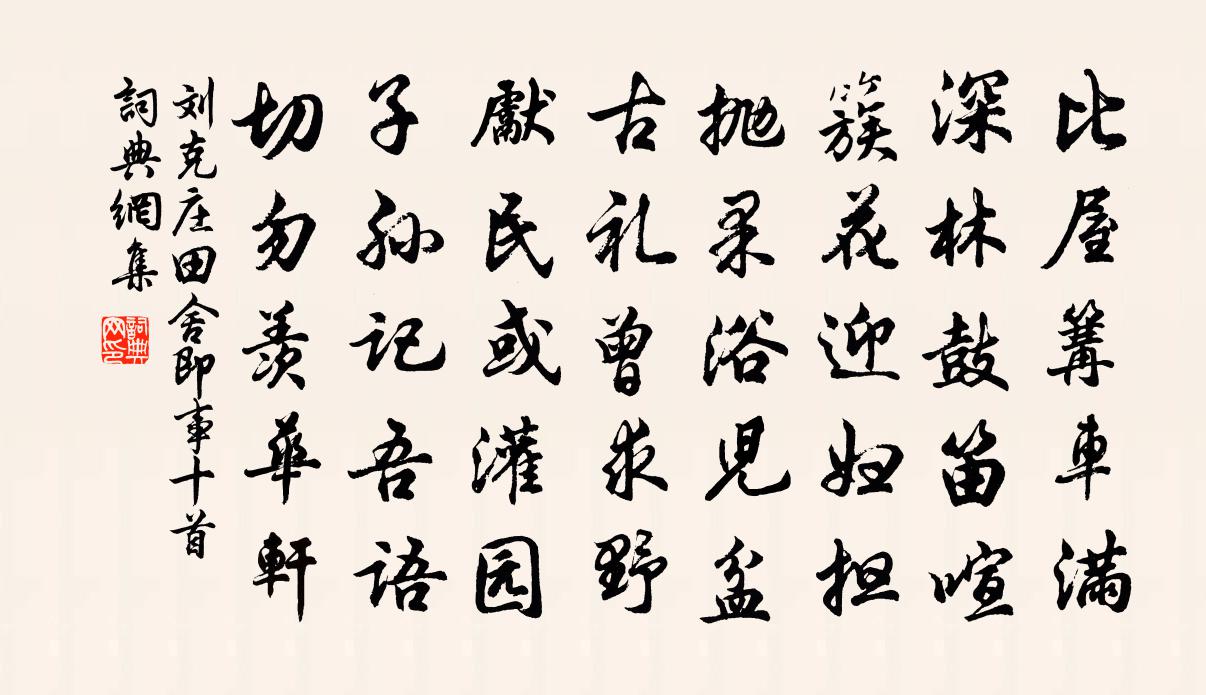 比屋篝車满
深林鼓笛喧
簇花迎妇担
抛果浴児盆
古礼曾求野
獻民或灌园
子孙记吾语
切勿羨華軒
刘克庄田舍即事十首
詞典網集
詞典网印